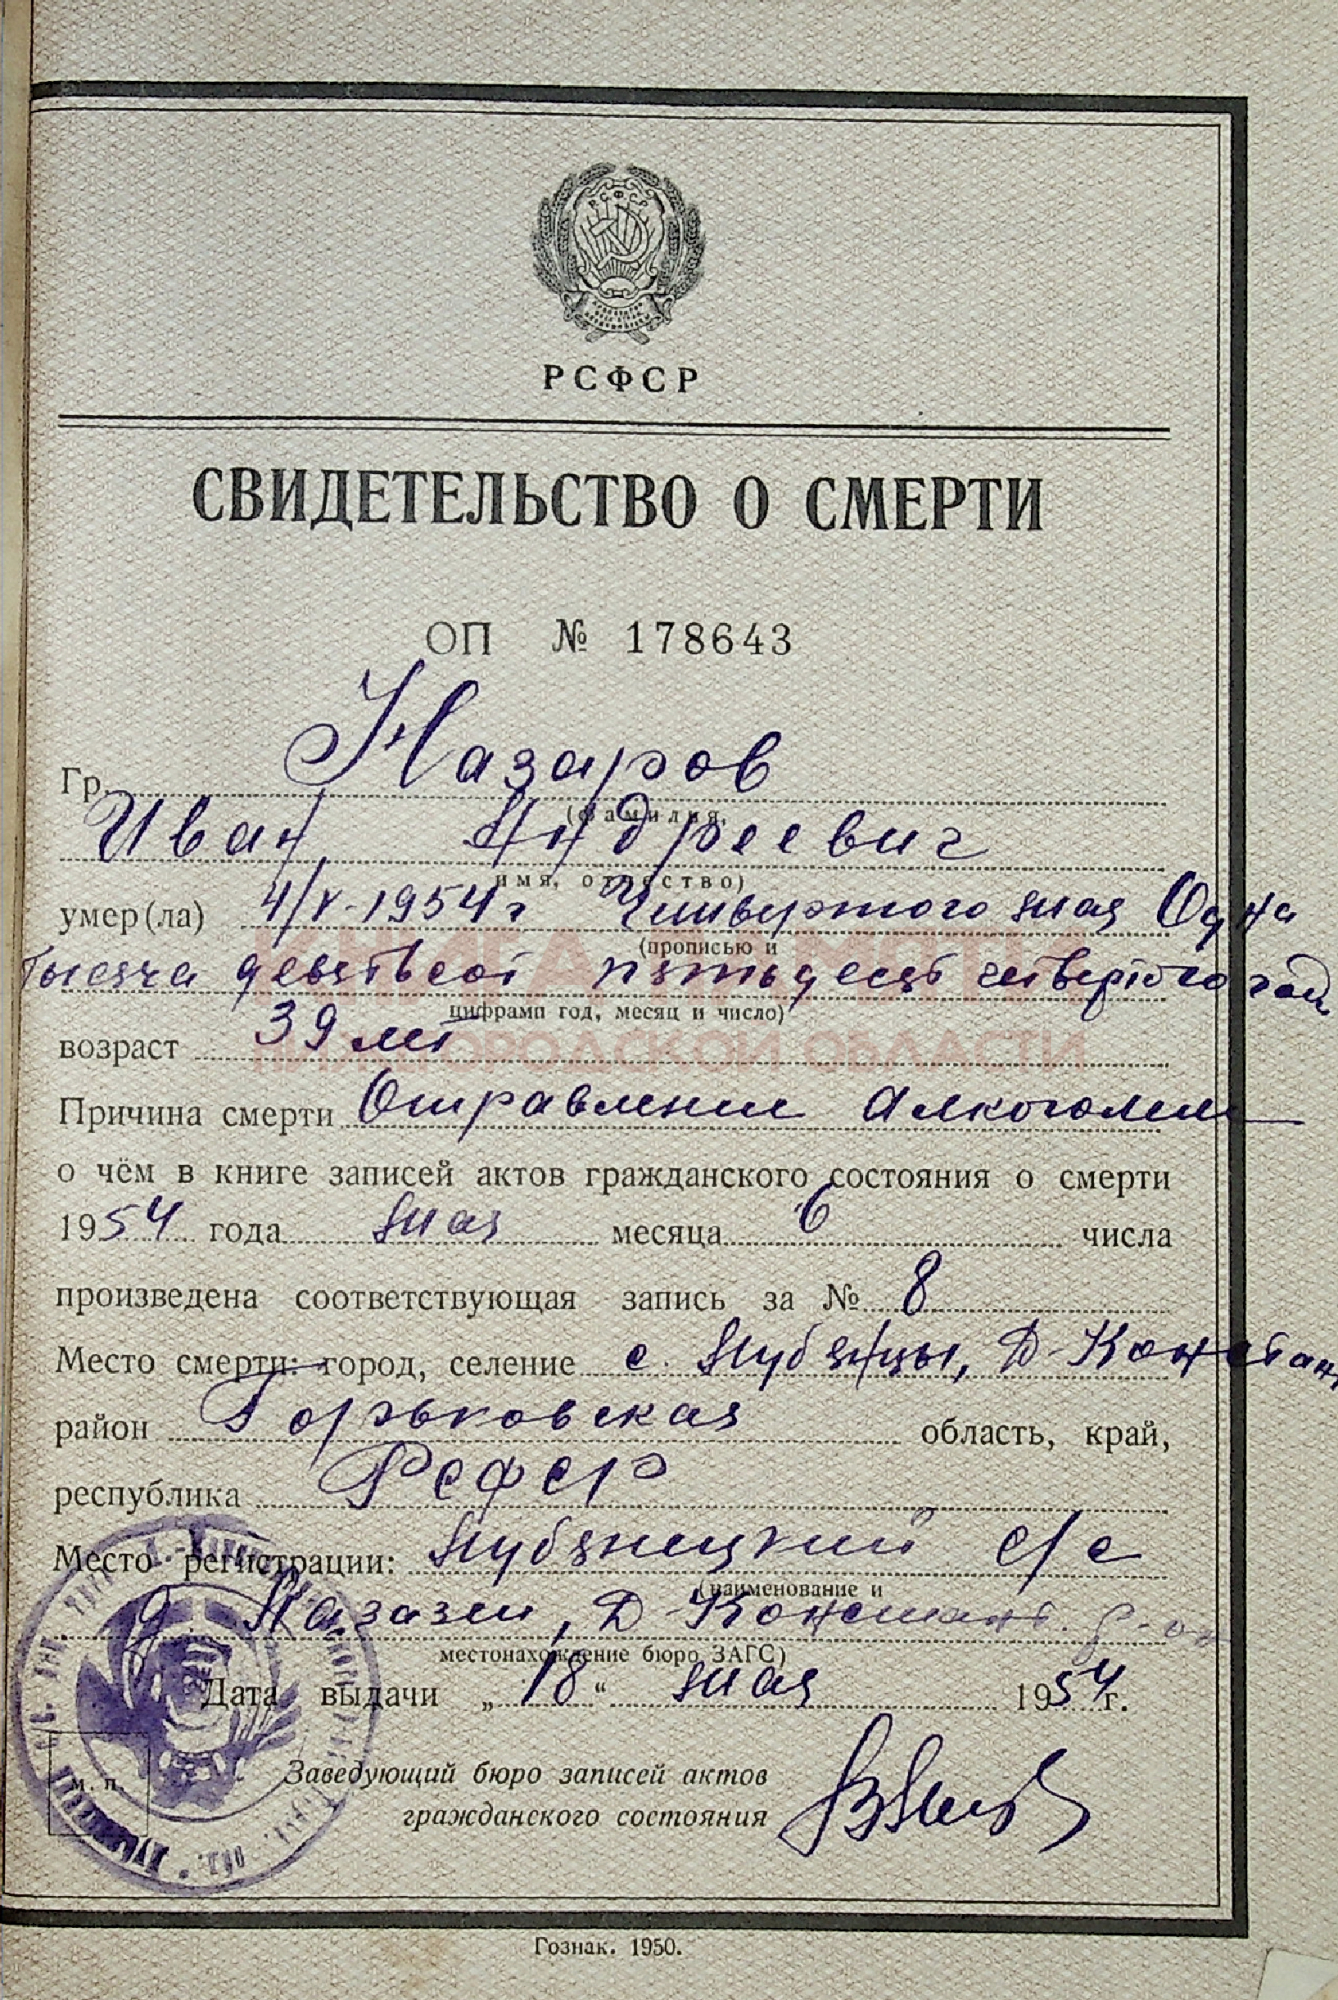 РСФСР
РСФСР
СВИДЕТЕЛЬСТВО О СМЕРТИ
ОП № 178643
Гр. Назаров
(фамилия,
Иван Андреевич
имя, отчество)
умер(ла) 4/V-1954г Четвертого мая Одна
(прописью и
тысяча девятьсот пятьдесят четвертого год
цифрами год, месяц и число)
КНИГА ПАМЯТИ
НИЖЕГОРОДСКОЙ ОБЛАСТИ
возраст 39 лет
Причина смерти Отравление алкоголем
о чём в книге записей актов гражданского состояния о смерти
1954 года мая месяца 6 числа
произведена соответствующая запись за № 8
Место смерти: город, селение с. Лубянцы, Д-Констан
район Горьковская область, край,
республика РСФСР
Место регистрации: с/с
(наименование и
д. , Д-Констант. р-он
местонахождение бюро ЗАГС)
Дата выдачи „18“ мая 1954г.
М. П.
Заведующий бюро записей актов
гражданского состояния
Гознак. 1950.